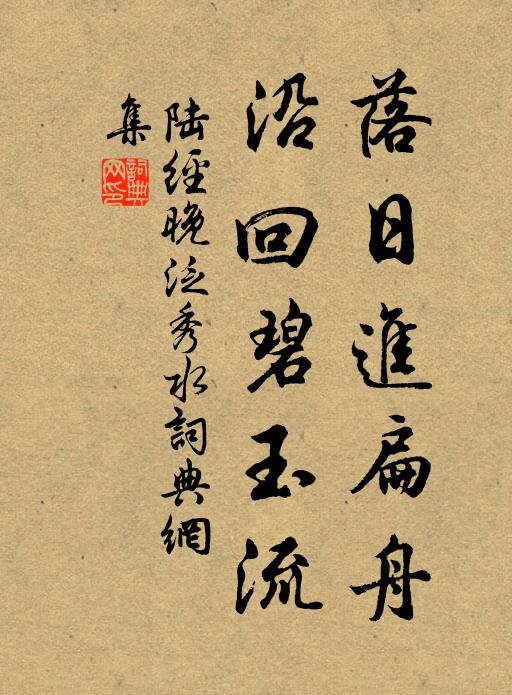 落日進扁舟
沿回碧玉流
陆經晚泛秀水詞典網
集
詞典
网印